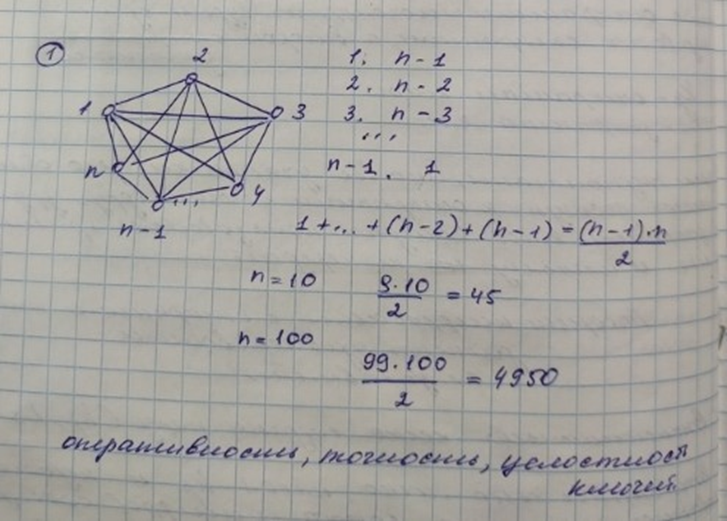 1
2
1
3
n
4
...
n-1
1. n-1
2. n-2
3. n-3
...
n-1. 1
1+...+(n-2)+(n-1) = (n-1)·n / 2
n=10 9·10 / 2 = 45
n=100 99·100 / 2 = 4950
оперативность, точность, целостность
ключей.